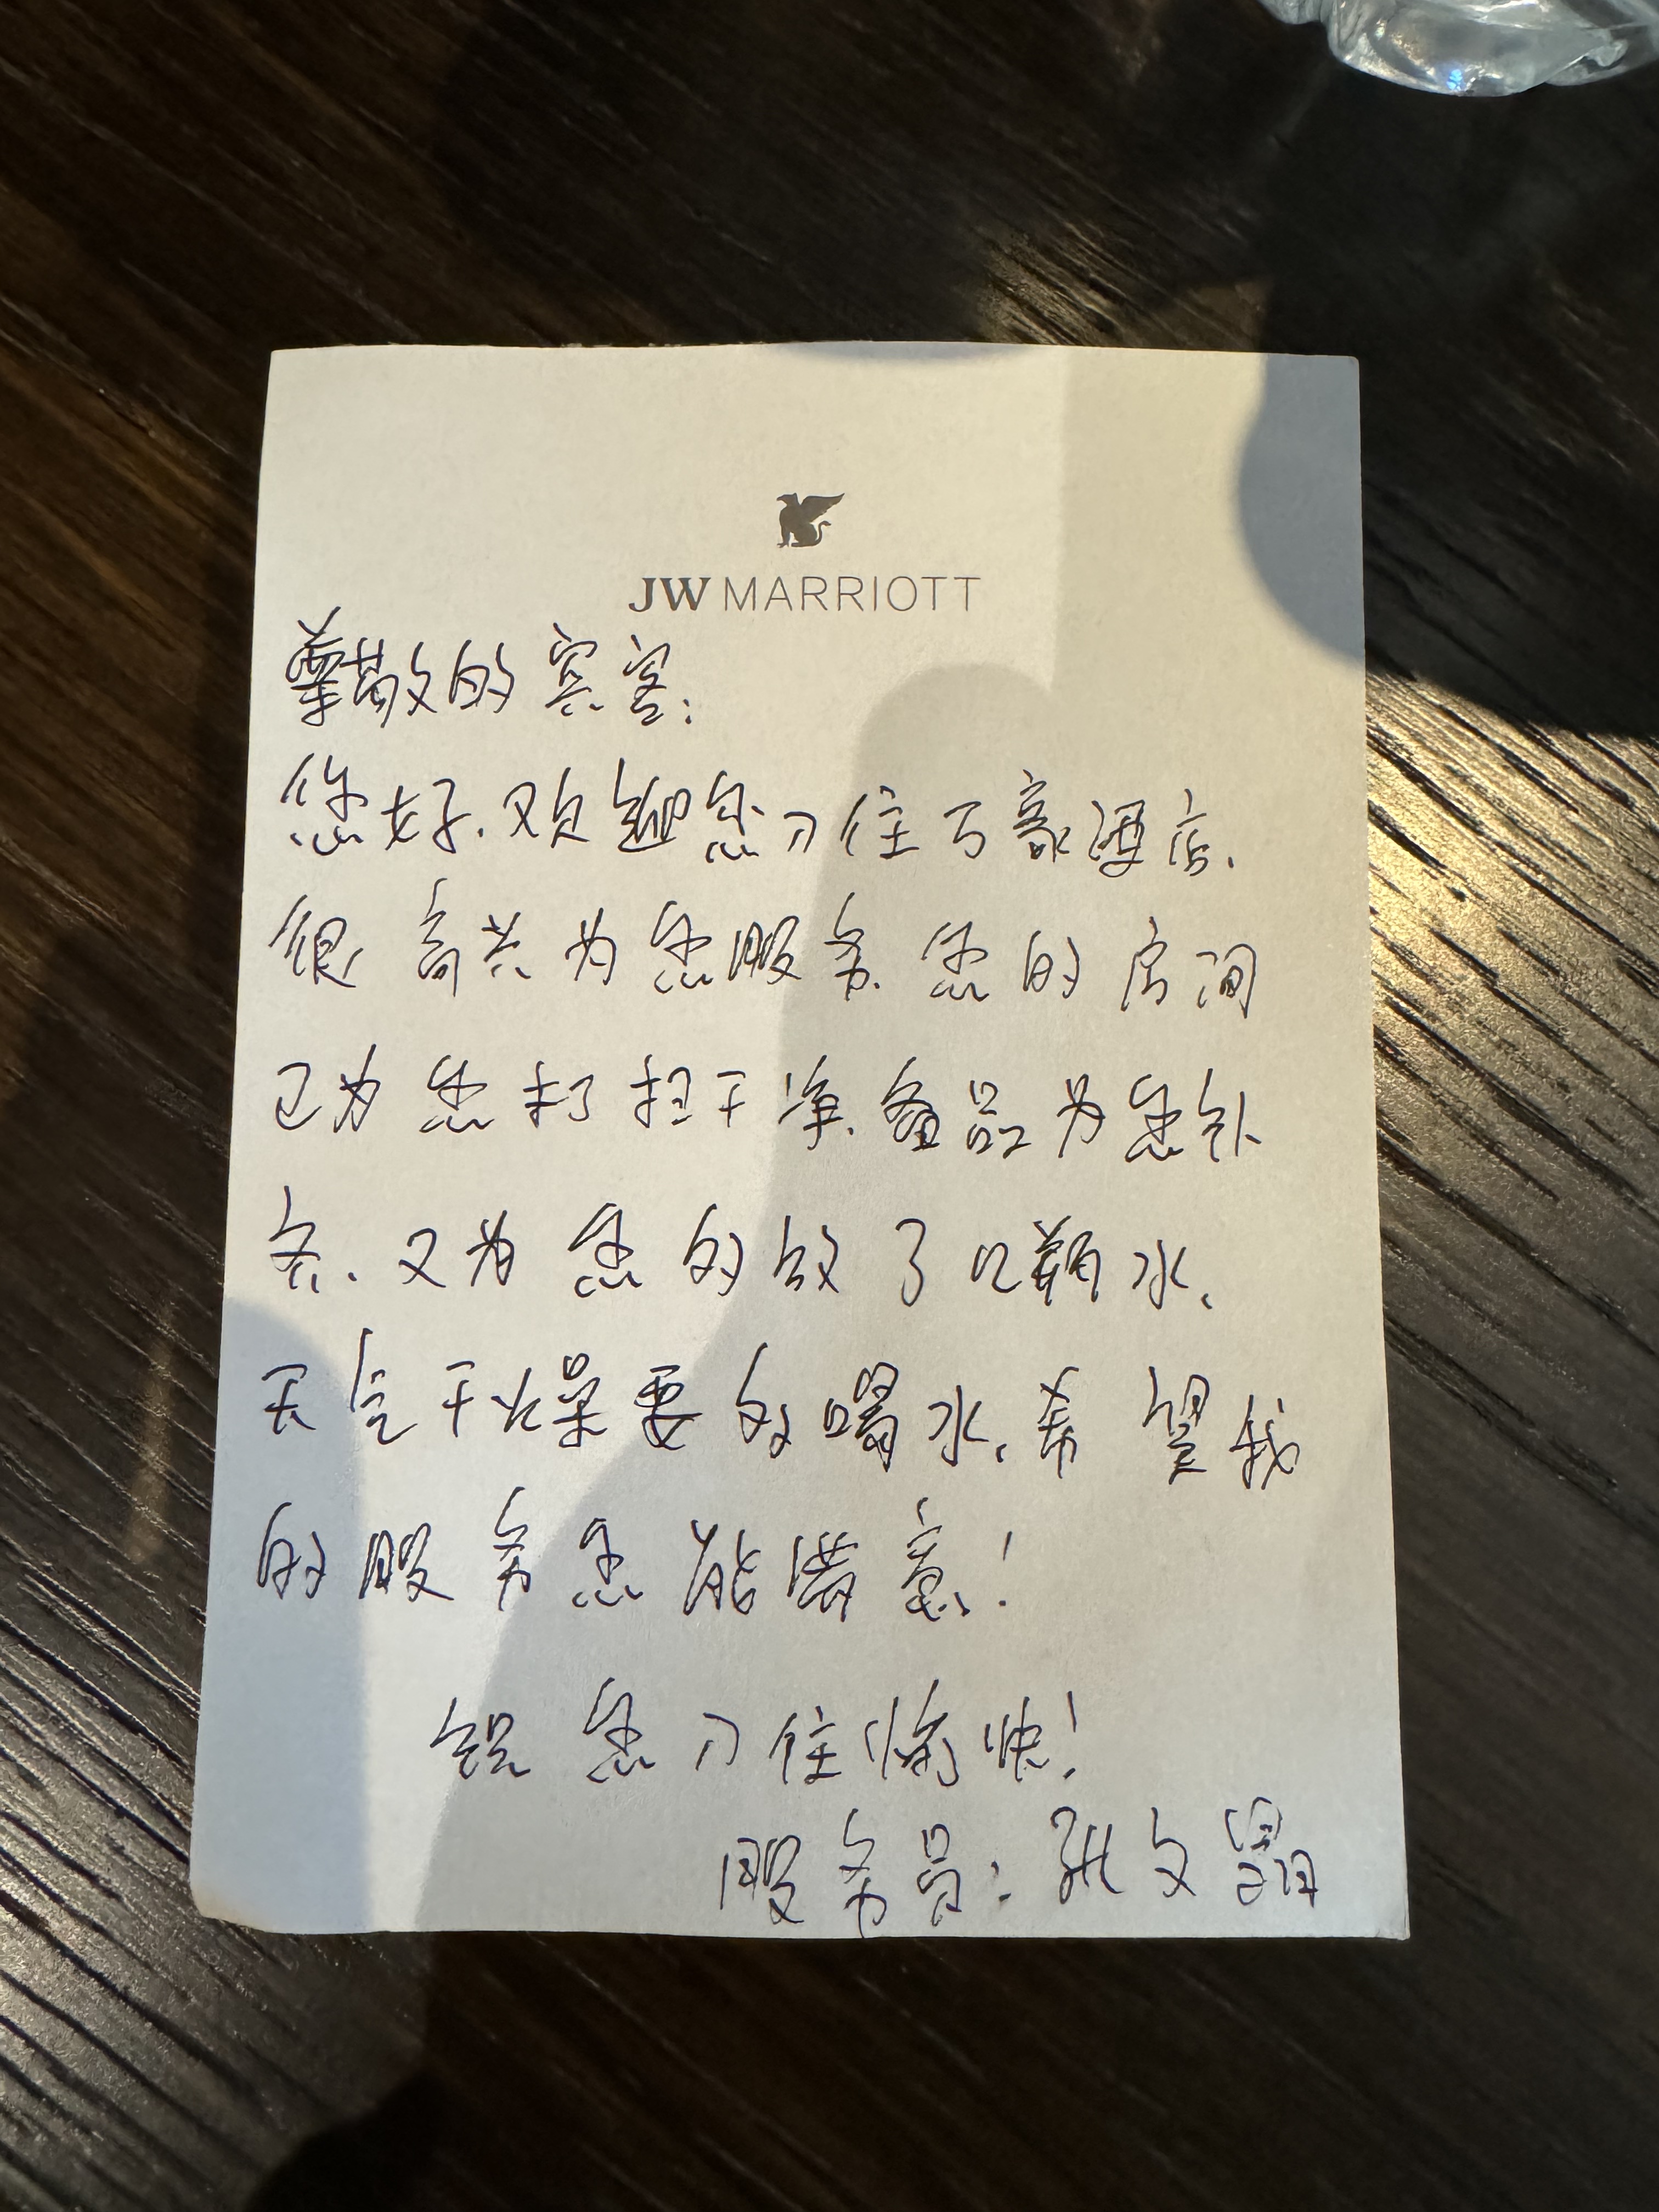 JW MARRIOTT
尊敬的宾客:
您好.欢迎您入住万豪酒店.
很高兴为您服务.您的房间
已为您打扫干净.备品为您补
齐.又为您多放了几瓶水.
天气干燥要多喝水.希望我
的服务您能满意!
祝您入住愉快!
服务员:张文